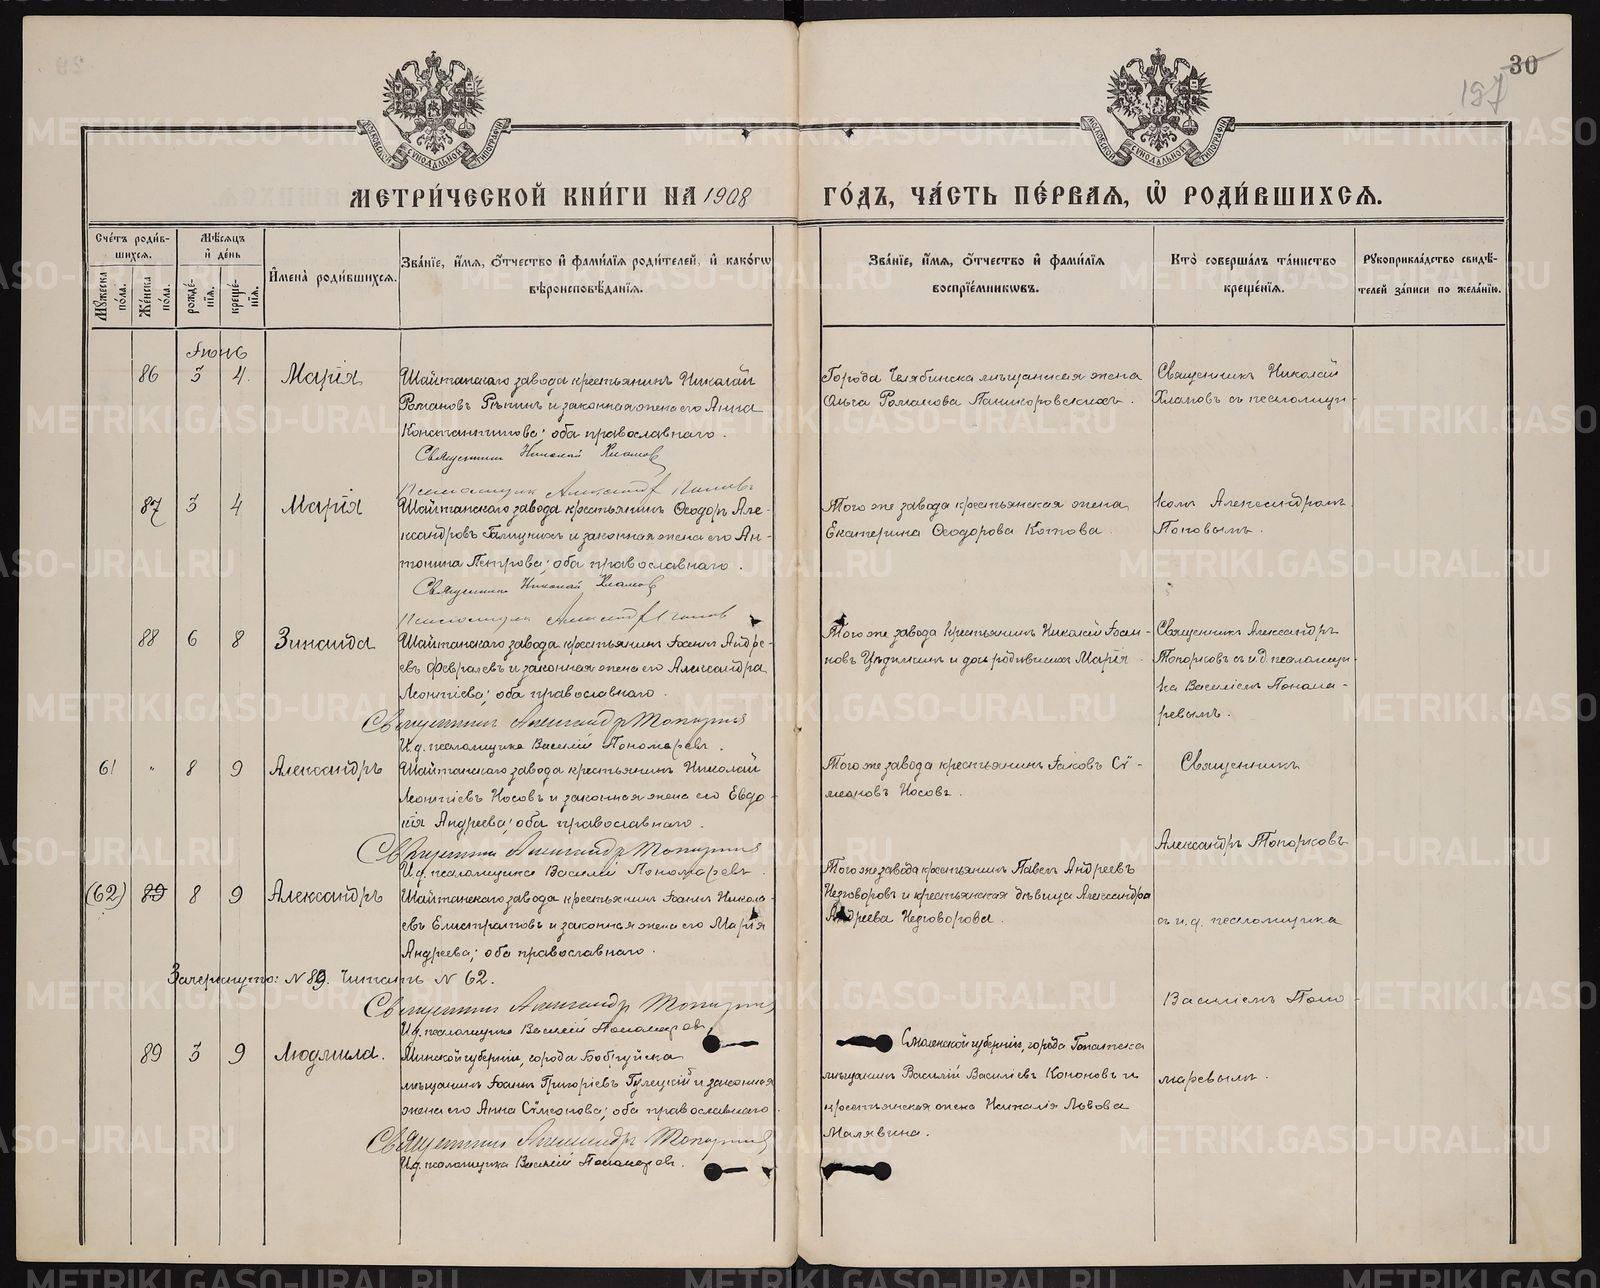 30
197
МОСКОВСКОЙ СѴНОДАЛЬНОЙ ТИПОГРАФІИ
МОСКОВСКОЙ СѴНОДАЛЬНОЙ ТИПОГРАФІИ
МЕТРИ́ЧЕСКОЙ КНИ́ГИ НА 1908 ГО́ДЪ, ЧА́СТЬ ПЕ́РВАЯ, Ѡ РОДИ́ВШИХСЯ.
Сче́тъ роди́в-
шихся.
Мꙋжеска по́ла.
Же́нска по́ла.
Мѣ́сяцъ
и де́нь
рожде́-
нїя.
креще́-
нїя.
Имена̀ роди́вшихся.
Зва́нїе, и́мя, ѻ́тчество и фами́лїя роди́телей, и како́гѡ
вѣроисповѣ́данїя.
Зва́нїе, и́мя, ѻ́тчество и фами́лїя
воспрїе́мникѡвъ.
Кто̀ соверша́лъ та́инство
креще́нїя.
Рꙋкоприкла́дство свидѣ́-
телей за́писи по жела́нїю.
Іюнь
86 3 4. Марія
Шайтанскаго завода крестьянинъ Николай
Романовъ Рѣпинъ и законная жена его Анна
Константинова; оба православнаго.
Священникъ Николай Хламовъ
Псаломщикъ Александръ Поповъ
Города Челябинска мѣщанская жена
Ольга Романова
Священникъ Николай
Хламовъ съ псаломщи-
87 3 4 Марія
Шайтанскаго завода крестьянинъ Ѳеодоръ Але-
ксандровъ Галицкихъ и законная жена его Ан-
тонина Петрова; оба православнаго.
Священникъ Николай Хламовъ
Псаломщикъ Александръ Поповъ
Того же завода крестьянская жена
Екатерина Ѳеодорова Котова.
комъ Александромъ
Поповымъ.
88 6 8 Зинаида
Шайтанскаго завода крестьянинъ Іоаннъ Андре-
евъ Февралевъ и законная жена его Александра
Леонтіева; оба православнаго.
Священникъ Александръ Топорковъ
И.д. псаломщика Василій Пономаревъ.
Того же завода крестьянинъ Николай Іоан-
новъ и дочь Марія
Священникъ Александръ
Топорковъ съ и.д. псаломщи-
ка Василіемъ Понома-
ревымъ.
61 " 8 9 Александръ
Шайтанскаго завода крестьянинъ Николай
Леонтіевъ Носовъ и законная жена его Евдо-
кія Андреева; оба православнаго.
Священникъ Александръ Топорковъ
И.д. псаломщика Василій Пономаревъ.
Того же завода крестьянинъ Іаковъ Сѵ-
меоновъ Носовъ.
Священникъ
Александръ Топорковъ
(62) 89 8 9 Александръ
Шайтанскаго завода крестьянинъ Іоаннъ Никола-
евъ Елистратовъ и законная жена его Марія
Андреева; оба православнаго.
Зачеркнуто: № 89. Читать № 62.
Священникъ Александръ Топорковъ
И.д. псаломщика Василій Пономаревъ
Того же завода крестьянинъ Павелъ Андреевъ
Неговоровъ и крестьянская дѣвица Александра
Андреева Неговорова.
съ и.д. псаломщика
Василіемъ Поно-
89 3 9 Людмила.
Минской губерніи, города Бобруйска
мѣщанинъ Іоаннъ Григоріевъ Гулецкій и законная
жена его Анна Сѵмеонова; оба православнаго.
Священникъ Александръ Топорковъ
И.д. псаломщика Василій Пономаревъ.
Смоленской губерніи, города Гжатска
мѣщанинъ Василій Василіевъ Кононовъ и
крестьянская жена Наталія Львова
Малявина.
маревымъ.